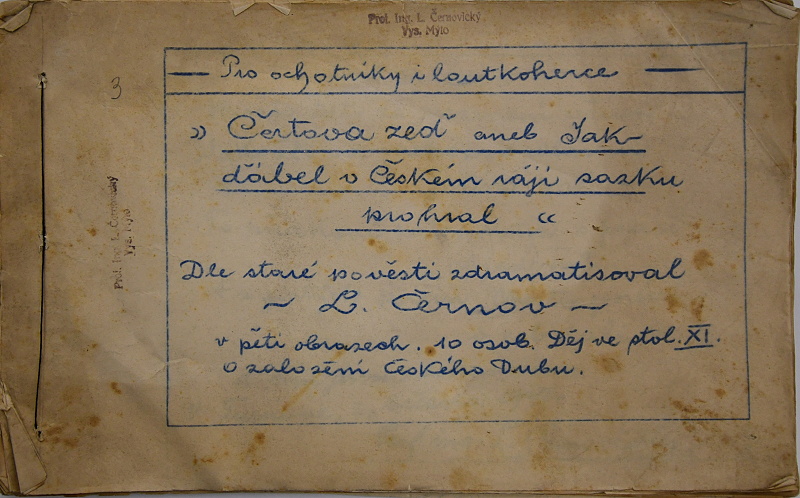 Prof. Ing. L. Černovický
Vys. Mýto
3
Prof. Ing. L. Černovický
Vys. Mýto
— Pro ochotníky i loutkoherce —
» Čertova zeď aneb Jak
ďábel v Českém ráji sazku
prohral «
Dle staré pověsti zdramatisoval
~ L. Černov ~
v pěti obrazech. 10 osob. Děj ve stol. XI.
O založení Českého Dubu.